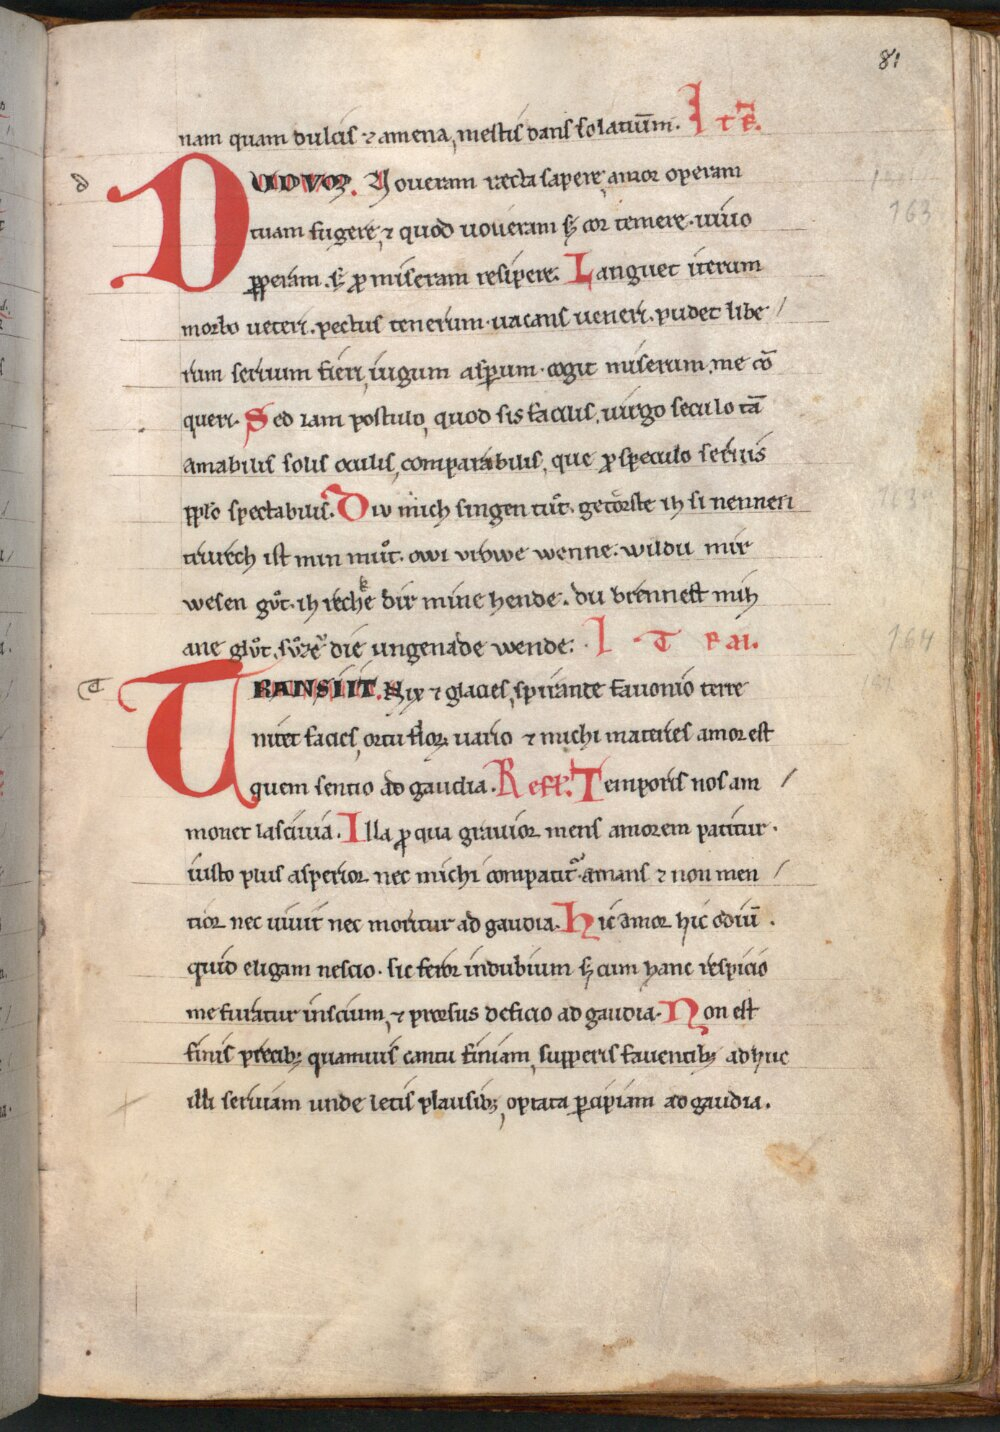 81
nam quam dulcis ⁊ amena, mestis dans solatiūm. Itē.
DVDVM VOV. Noueram recta sapere, amor operam
tuam fugere, ⁊ quod uoueram sꝫ cor temere. uiuo
ꝑperam. sꝫ ꝑ miseram resipere. Languet iterum
morbo ueteri. pectus tenerum. uacans ueneri. pudet libe/
rum seruum fieri, iugum asꝑum. cogit miserum, me cō
queri. Sed iam postulo, quod sis facilis, uirgo seculo tā
amabilis solis oculis, comparabilis, que ꝓ speculo seruis
pplo spectabilis. Diu mich singen tůt. getorste ih si nennen
trurech ist min můt. owi vrowe wenne. wildu mir
wesen gůt. ih recke dir mine hende. du brennest mih
ane glůt, sůze die ungenade wende. ITEM.
163
163a
164
d
t
TRANSIIT Nix ⁊ glacies, spirante fauonio terre
nitet facies, ortu floꝝ uario ⁊ michi materies amor est
quem sentio ad gaudia. Refl. Temporis nos am/
monet lasciuia. Illa ꝓ qua grauior mens amorem patitur.
iusto plus asperior nec michi compatit᷑. amans ⁊ non men/
tior nec uiuit nec moritur ad gaudia. Hic amor hic odiū.
quid eligam nescio. sic feror in dubium sꝫ cum hanc respicio
me furatur inscium, ⁊ prorsus deficio ad gaudia. Non est
finis precibꝫ quamuis cantu finiam, supperis fauentibꝫ adhuc
illi seruiam unde letis plausibꝫ, optata ꝑcipiam ad gaudia.